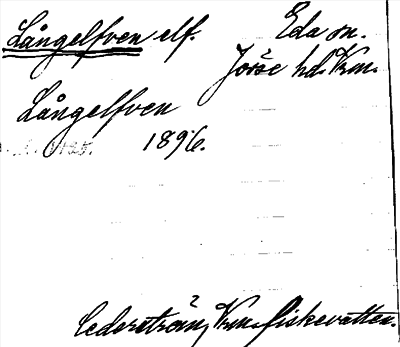 Långelfven elf. Eda sn.
Jösse hd. Vrm.
Långelfven
1896.
Cederström, Vrm. fiskevatten.